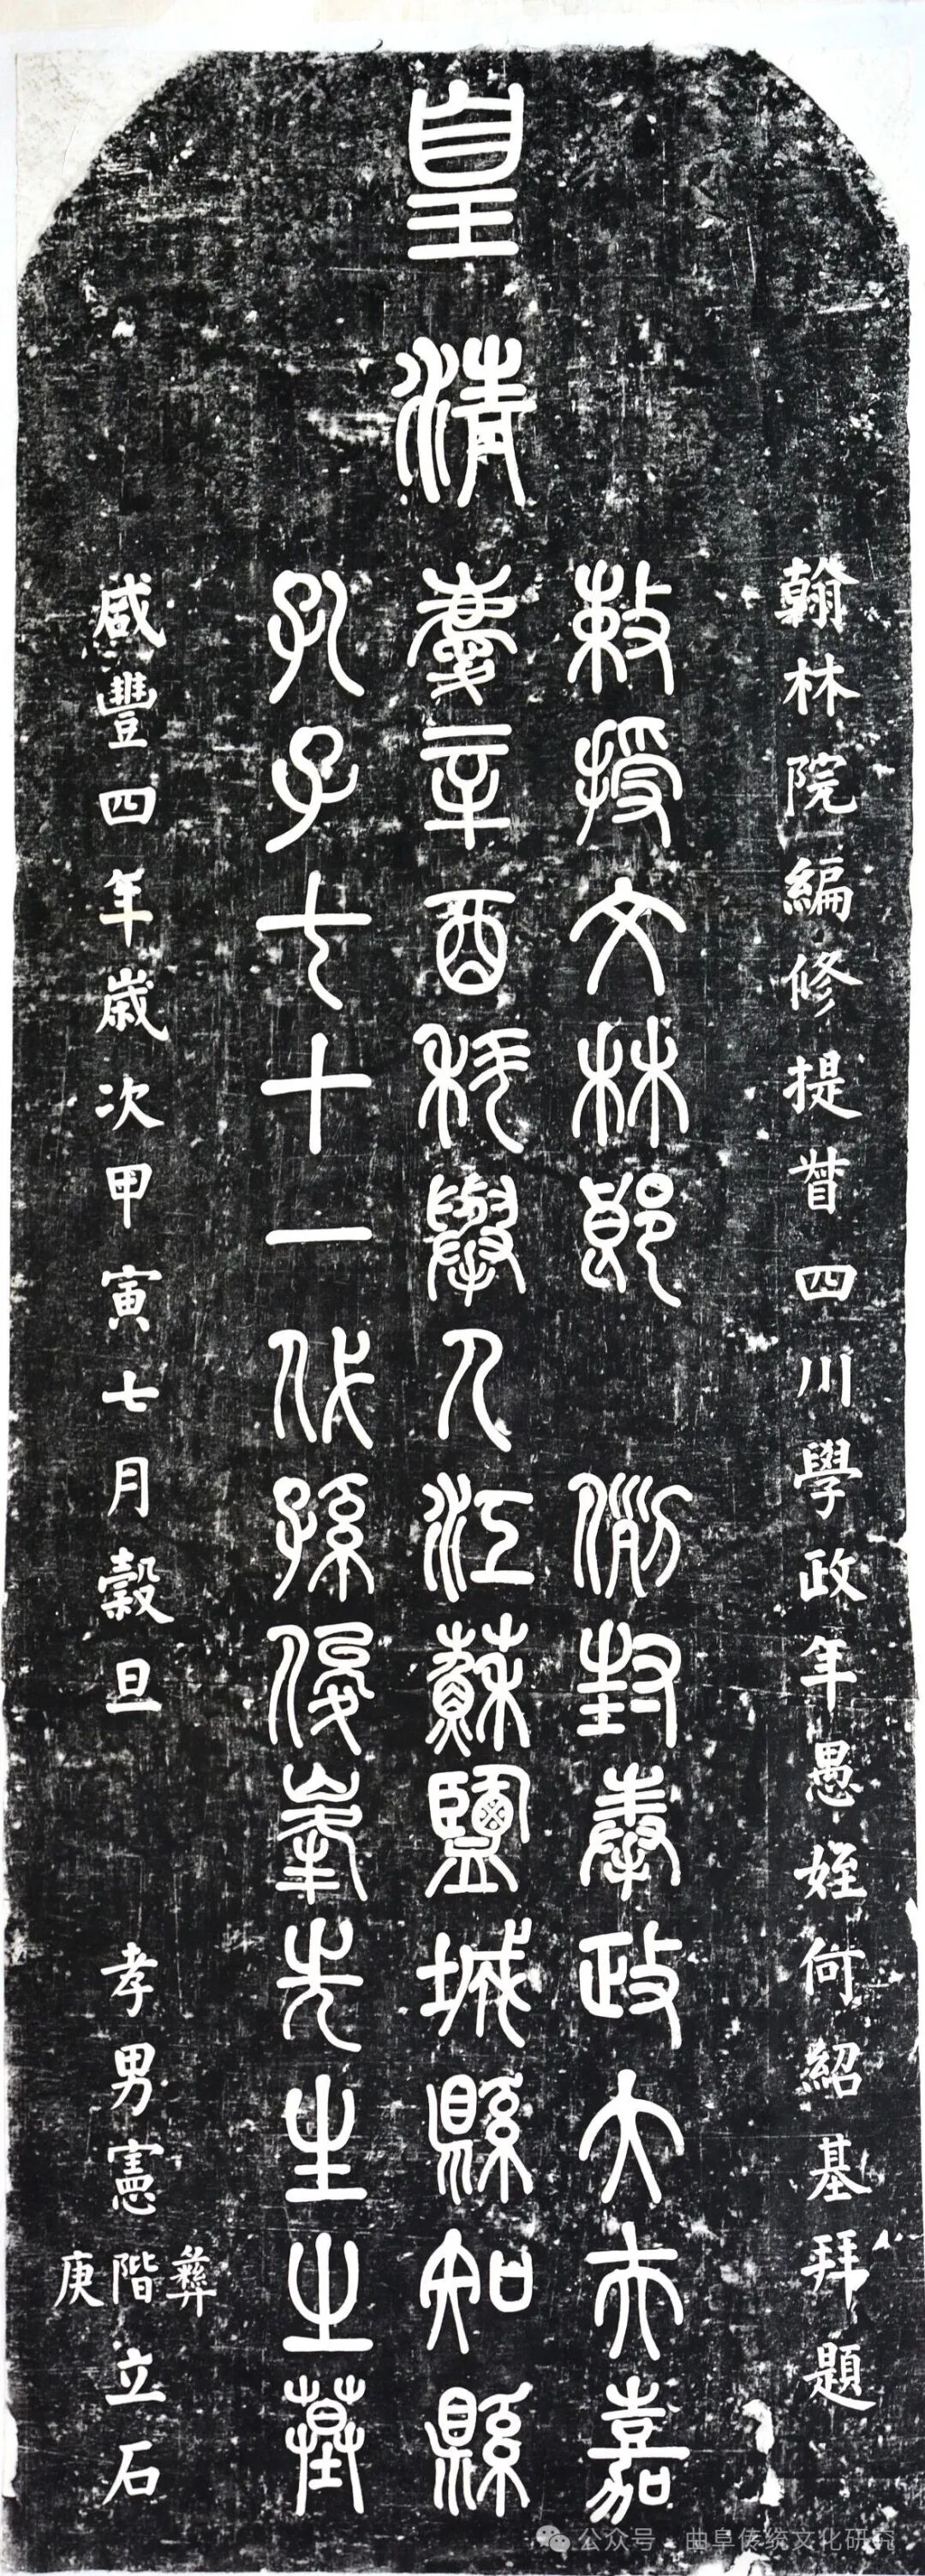 皇清
翰林院編修提督四川學政年愚姪何紹基拜題
敕授文林郎 例封奉政大夫嘉
慶辛酉科舉人江蘇鹽城縣知縣
孔子七十一代孫俊峯先生之墓
咸豐四年歲次甲寅七月穀旦 孝男憲彝階庚立石
公众号 · 曲阜传统文化研究